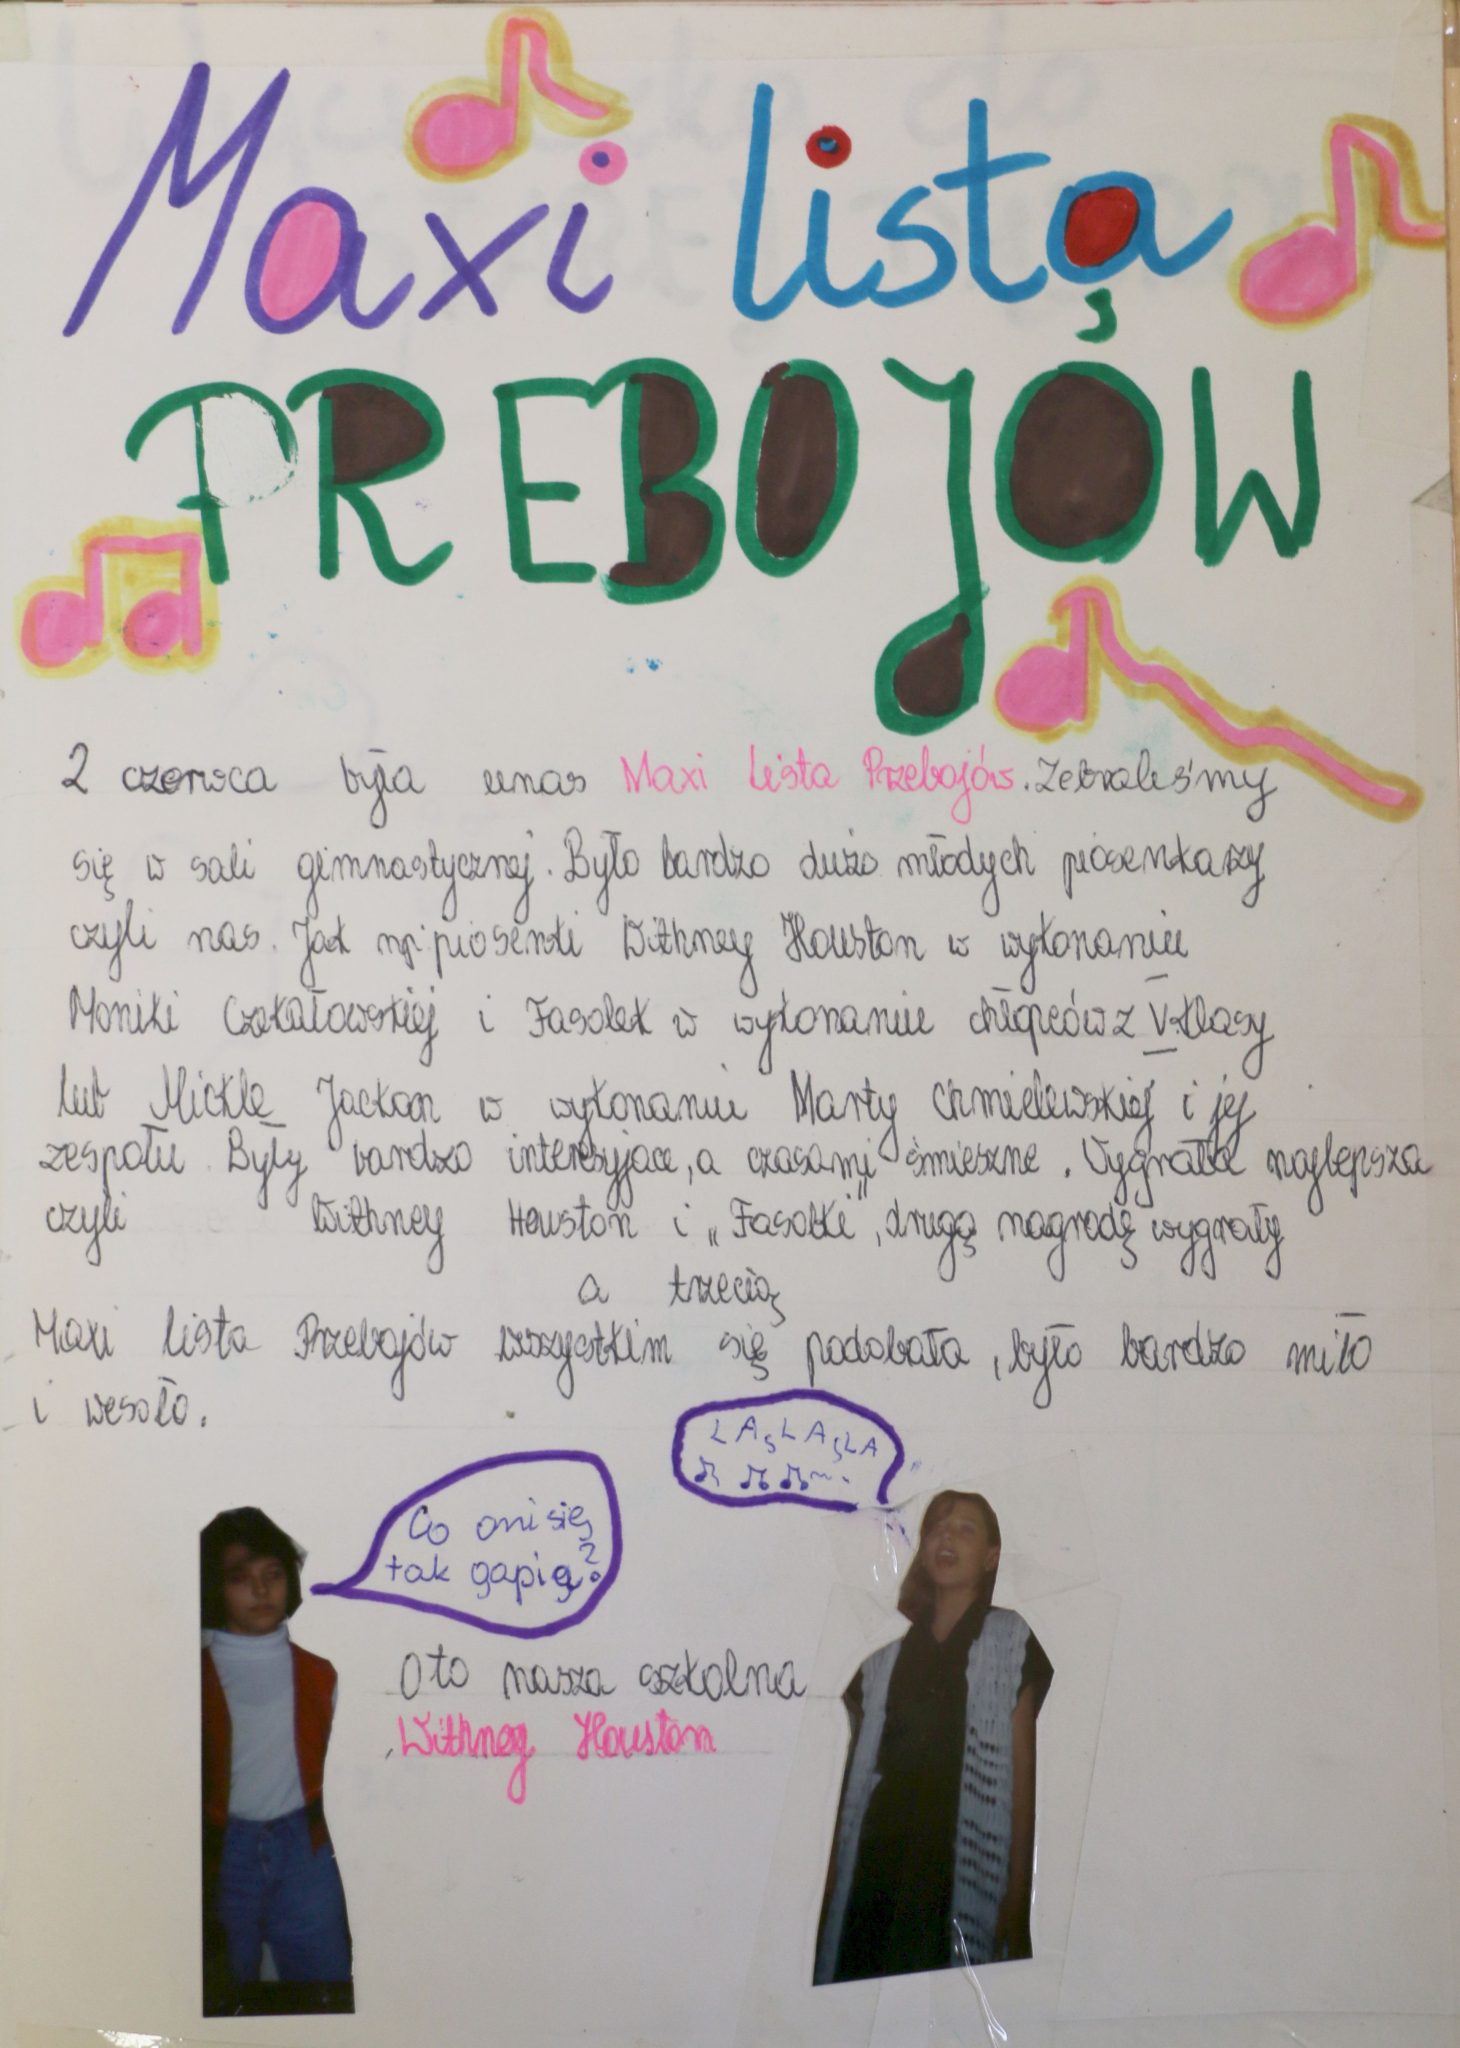 Maxi lista
PREBOJÓW
2 czerwca była unas Maxi Lista Przebojów. Zebraliśmy
się w sali gimnastycznej. Było bardzo dużo młodych piosenkaszy
czyli nas. Jak np. piosenki Withney Houston w wykonaniu
Moniki Czekałowskiej i Fasolek w wykonaniu chłopców z V klasy
lub Mickle Jackon w wykonaniu Marty Chmielewskiej i jej
zespołu. Były bardzo interesyjace, a czasami śmieszne. Wygrała najlepsza
czyli Withney Houston i „Fasolki”, drugą nagrodę wygrały
a trzecią
Maxi lista Przebojów wszystkim się podobała, było bardzo miło
i wesoło.
LA, LA, LA
Co oni się
tak gapią?
Oto nasza szkolna
Withney Houston